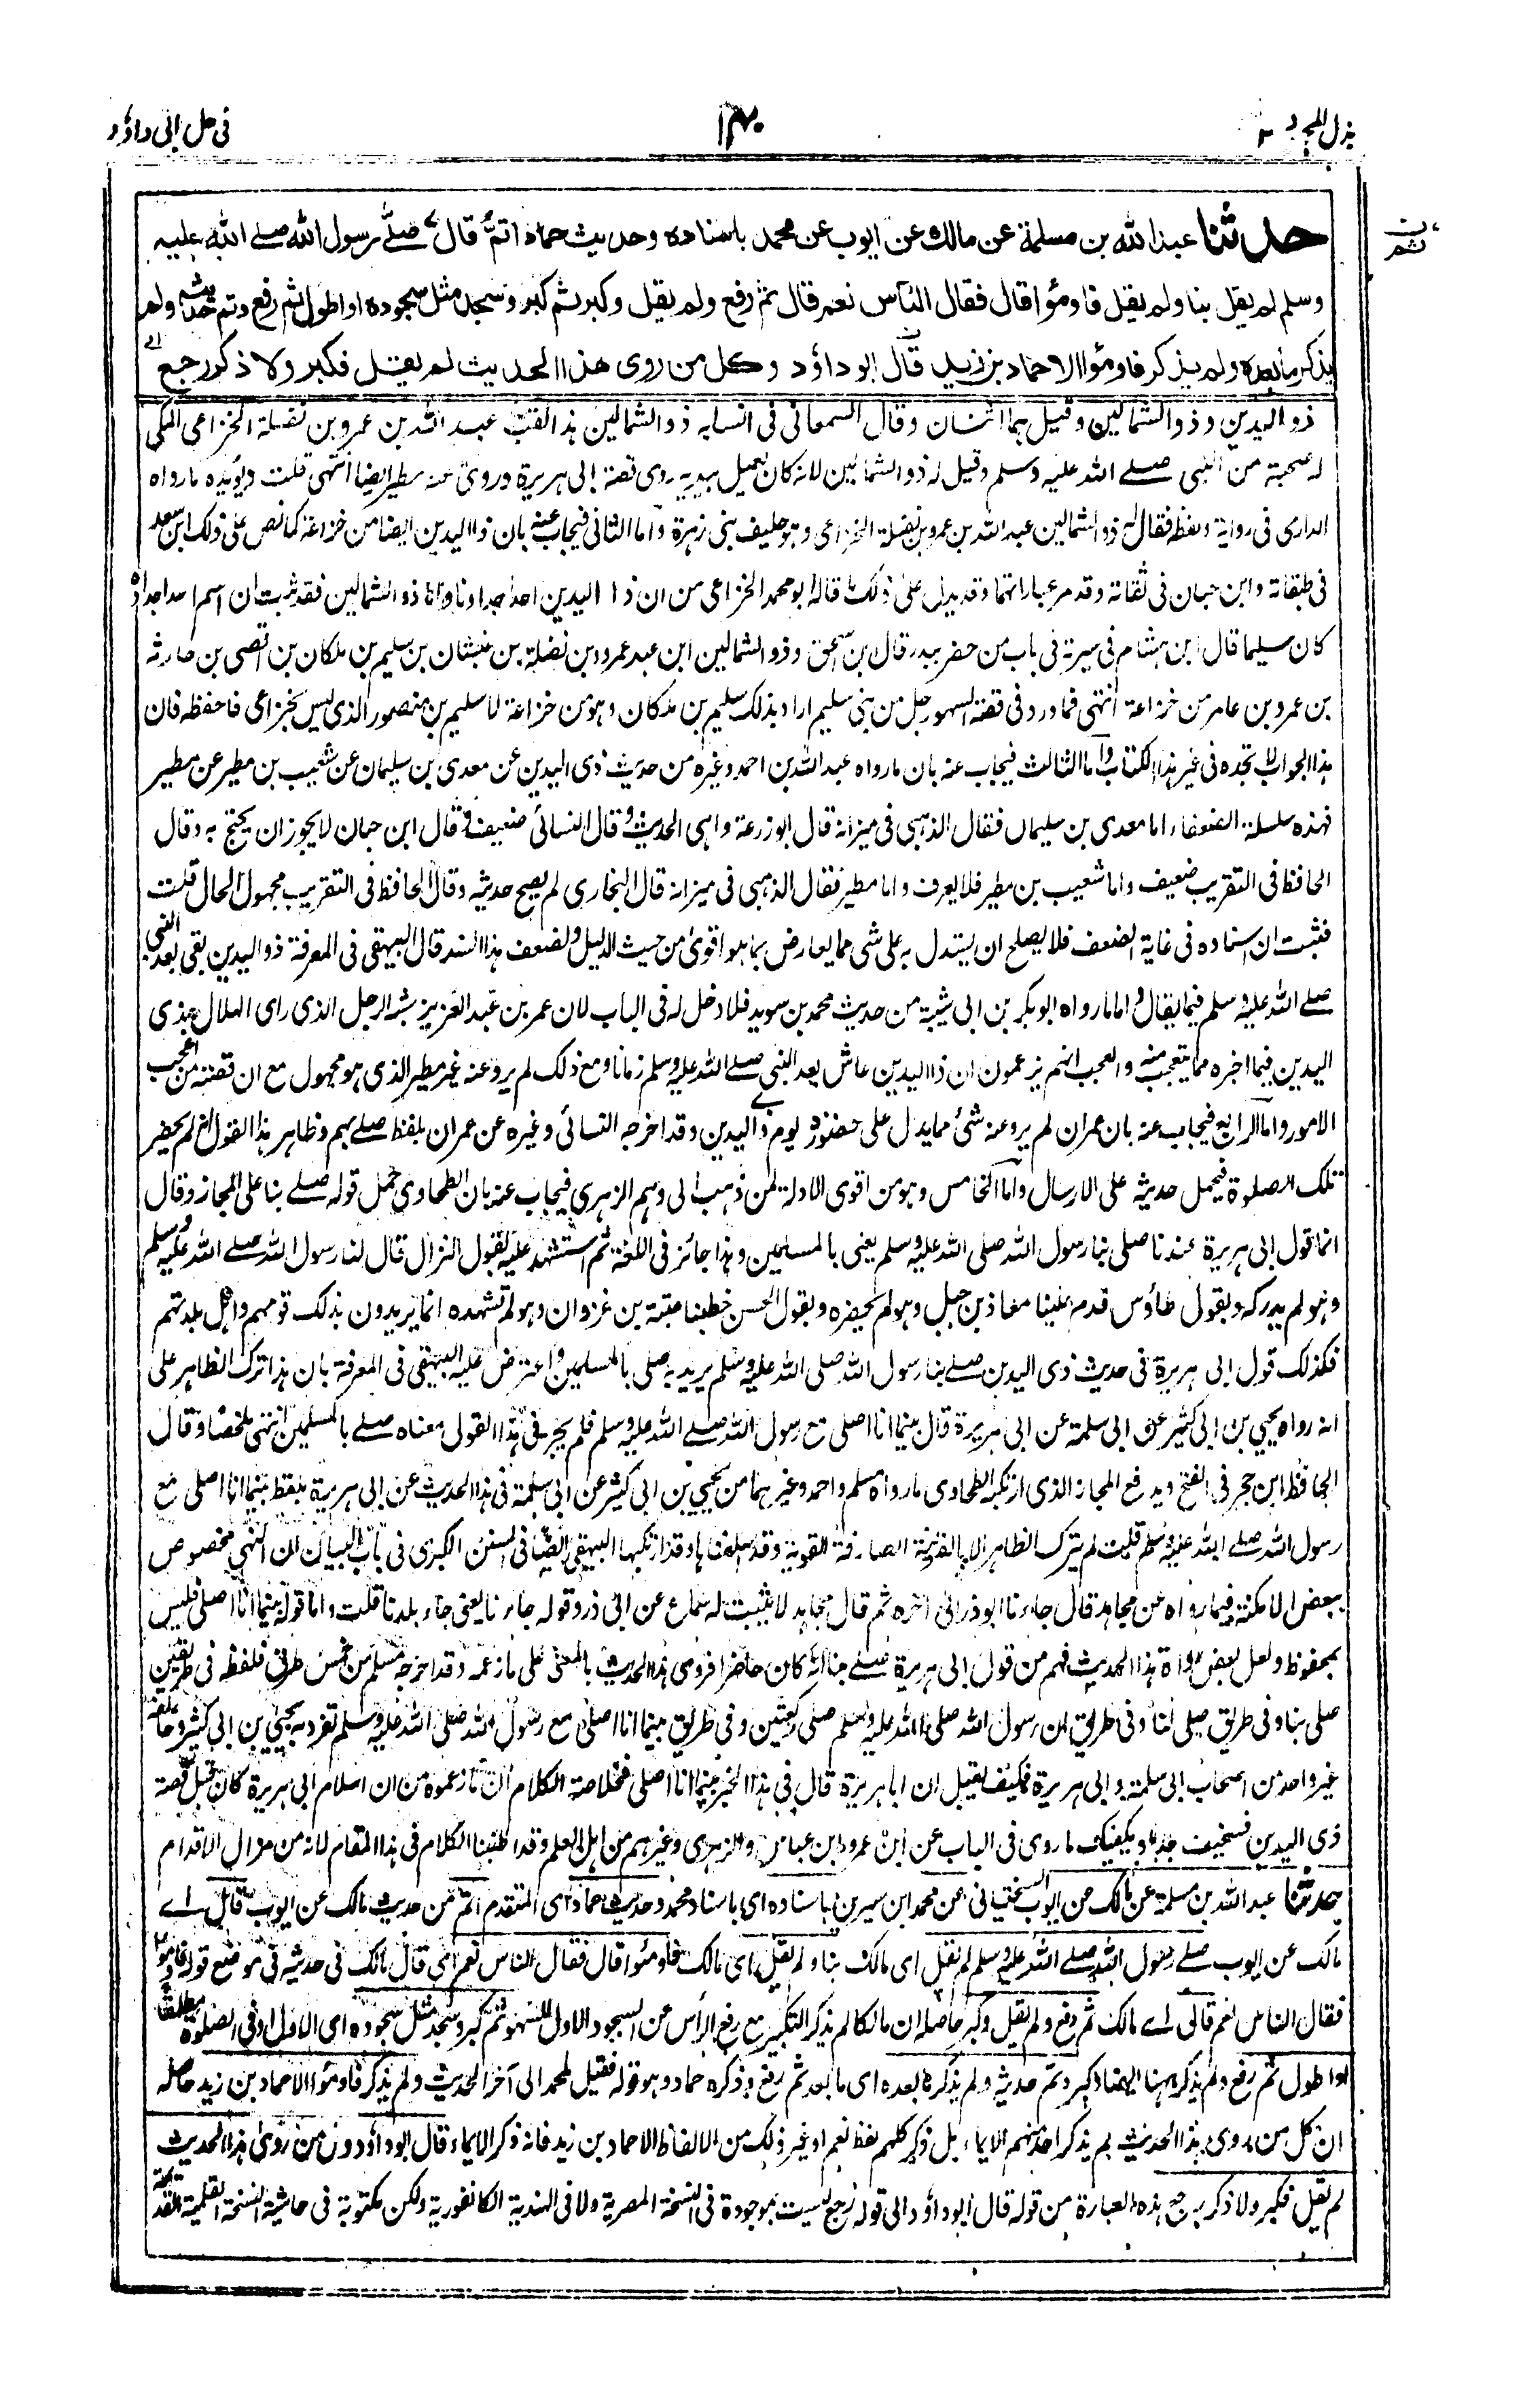 بذل المجهود ٢
١٤٠
فی حل ابی داؤد
حدثنا عبد الله بن مسلمة عن مالك عن ايوب عن محمد باسناده وحديث حماد اتم قال صلے رسول الله صلے الله عليه
وسلم لم يقل بنا ولم يقل فاومؤا قال فقال الناس نعم قال ثم رفع ولم يقل وكبر ثم كبر وسجد مثل سجوده او اطول ثم رفع وتم حديثه ولم
يذكر ما بعده ولم يذكر فاومؤا الا حماد بن زيد قال ابو داؤد وكل من روى هذا الحديث لم يقل فكبر ولا ذكر رجع
ذو اليدين وذو الشمالين وقيل هما اثنان وقال السمعانى فى انسابه ذو الشمالين هذا لقب عبد الله بن عمرو بن نضلة الخزاعى المكى
له صحبة من النبى صلے الله عليه وسلم وقيل له ذو الشمالين لانه كان يعمل بيديه روى قصة ابى هريرة وروى عنه مطير ايضا انتهى قلت ويؤيده ما رواه
الدارى فى رواية ولفظه فقال له ذو الشمالين عبد الله بن عمرو بن نضلة الخزاعى وهو حليف بنى زهرة واما الثانى فيجاب عنه بان ذا اليدين ايضا من خزاعة كما نص على ذلك ابن سعد
فى طبقاته وابن حبان فى ثقاته وقد مر عباراتهما وقد يدل على ذلك ما قاله ابو محمد الخزاعى من ان ذا اليدين احد اجدادنا واما ذو الشمالين فقد ثبت ان اسم احد اجداده
كان سليما قال ابن هشام فى سيرته فى باب من حضر ببدر قال ابن اسحق وذو الشمالين ابن عبد عمرو بن نضلة بن غبشان بن سليم بن ملكان بن افصى بن حارثه
بن عمرو بن عامر من خزاعة انتهى فما ورد فى قصة السهو رجل من بنى سليم اراد بذلك سليم بن ملكان وهو من خزاعة لا سليم بن منصور الذى ليس بخزاعى فاحفظه فان
هذا الجواب لا تجده فى غير هذا الكتاب واما الثالث فيجاب عنه بان ما رواه عبد الله بن احمد وغيره من حديث ذى اليدين عن معدى بن سليمان عن شعيب بن مطير عن مطير
فهذه سلسلة الضعفاء اما معدى بن سليمان فقال الذهبى فى ميزانه قال ابو زرعة واهى الحديث وقال النسائى ضعيف وقال ابن حبان لا يجوز ان يحتج به وقال
الحافظ فى التقريب ضعيف واما شعيب بن مطير فلا يعرف واما مطير فقال الذهبى فى ميزانه قال البخارى لم يصح حديثه وقال الحافظ فى التقريب مجهول الحال قلت
فثبت ان اسناده فى غاية الضعف فلا يصلح ان يستدل به على شى مما يعارض بما هو اقوى من حيث الدليل ولضعف هذا السند قال البيهقى فى المعرفة ذو اليدين بقى بعد النبى
صلے الله عليه وسلم فيما يقال واما ما رواه ابو بكر بن ابى شيبة من حديث محمد بن سويد فلا دخل له فى الباب لان عمر بن عبد العزيز شبه الرجل الذى راى الهلال بذى
اليدين فيما اخبره مما يتعجب منه والعجب انهم يزعمون ان ذا اليدين عاش بعد النبى صلے الله عليه وسلم زمانا ومع ذلك لم يرو عنه غير مطير الذى هو مجهول مع ان قصته من اعجب
الامور واما الرابع فيجاب عنه بان عمران لم يرو عنه شئ مما يدل على حضوره يوم ذى اليدين وقد اخرجه النسائى وغيره عن عمران بلفظ صلے بهم وظاهر هذا القول انه لم يحضر
تلك الصلوة فيحمل حديثه على الارسال واما الخامس وهو من اقوى الادلة لمن ذهب الى وهم الزهرى فيجاب عنه بان الطحاوى حمل قوله صلے بنا على المجاز وقال
انما قول ابى هريرة عندنا صلى بنا رسول الله صلى الله عليه وسلم يعنى بالمسلمين وهذا جائز فى اللغة ثم استشهد عليه بقول النزال قال لنا رسول الله صلے الله عليه وسلم
وهو لم يدركه وبقول طاؤس قدم علينا معاذ بن جبل وهو لم يحضره وبقول الحسن خطبنا عتبة بن غزوان وهو لم يشهده انما يريدون بذلك قومهم واهل بلدتهم
فكذلك قول ابى هريرة فى حديث ذى اليدين صلے بنا رسول الله صلى الله عليه وسلم يريد به صلى بالمسلمين واعترض عليه البيهقى فى المعرفة بان هذا ترك الظاهر على
انه رواه يحيى بن ابى كثير عن ابى سلمة عن ابى هريرة قال بينما انا اصلى مع رسول الله صلے الله عليه وسلم فلم يجز فى هذا القول معناه صلے بالمسلمين انتهى ملخصا وقال
الحافظ ابن حجر فى الفتح ويدفع المجاز الذى ارتكبه الطحاوى ما رواه مسلم واحمد وغيرهما من يحيى بن ابى كثير عن ابى سلمة فى هذا الحديث عن ابى هريرة بلفظ بينما انا اصلى مع
رسول الله صلے الله عليه وسلم قلت لم يترك الظاهر الا بالقرينة الصارفة القوية وقد اسلفناها وقد ارتكبها البيهقى ايضا فى السنن الكبرى فى باب البيان ان النهى مخصوص
ببعض الامكنة فيما رواه عن مجاهد قال جاءنا ابو ذر الى آخره ثم قال مجاهد لا يثبت له سماع عن ابى ذر وقوله جاءنا يعنى جاء بلدنا قلت واما قوله بينما انا اصلى فليس
بمحفوظ ولعل بعض رواة هذا الحديث فهم من قول ابى هريرة صلے بنا انه كان حاضرا فروى هذا الحديث بالمعنى على ما زعمه وقد اخرجه مسلم من خمس طرق فلفظه فى طريقين
صلى بنا وفى طريق صلى لنا وفى طريق ان رسول الله صلى الله عليه وسلم صلى ركعتين وفى طريق بينما انا اصلى مع رسول الله صلى الله عليه وسلم تفرد به يحيى بن ابى كثير وخالفه
غير واحد من اصحاب ابى سلمة وابى هريرة فكيف يقبل ان ابا هريرة قال فى هذا الخبر بينما انا اصلى فخلاصة الكلام ان ما زعموه من ان اسلام ابى هريرة كان قبل قصة
ذى اليدين فسخيف جدا ويكفيك ما روى فى الباب عن ابن عمر وابن عباس والزهرى وغيرهم من اهل العلم وقد اطنبنا الكلام فى هذا المقام لانه من مزال الاقدام
حدثنا عبد الله بن مسلمة عن مالك عن ايوب السختيانى عن محمد ابن سيرين باسناده اى باسناد محمد وحديث حماد اى المتقدم اتم من حديث مالك عن ايوب قال اے
مالك عن ايوب صلے رسول الله صلے الله عليه وسلم لم يقل اى مالك بنا ولم يقل اى مالك فاومئوا قال فقال الناس نعم اى قال مالك فى حديثه فى موضع قوله فاومؤا
فقال الناس نعم قال اے مالك ثم رفع ولم يقل وكبر حاصله ان مالكا لم يذكر التكبير مع رفع الرأس عن السجود الاول للسهو ثم كبر وسجد مثل سجوده اى الاول او فى الصلوة مطلقا
او اطول ثم رفع ولم يذكر ههنا ايضا وكبر وتم حديثه ولم يذكر ما بعده اى ما بعد ثم رفع وذكره حماد وهو قوله فقيل لمحمد الى آخر الحديث ولم يذكر فاومؤا الا حماد بن زيد حاصله
ان كل من روى هذا الحديث لم يذكر احد منهم الايماء بل ذكر كلهم لفظ نعم او غير ذلك من الالفاظ الا حماد بن زيد فانه ذكر الايماء قال ابو داؤد وكل من روى هذا الحديث
لم يقل فكبر ولا ذكر رجع هذه العبارة من قوله قال ابو داؤد الى قوله رجع ليست بموجودة فى النسخة المصرية ولا فى الهندية الكانفورية ولكن مكتوبة فى حاشية النسخة القلمية